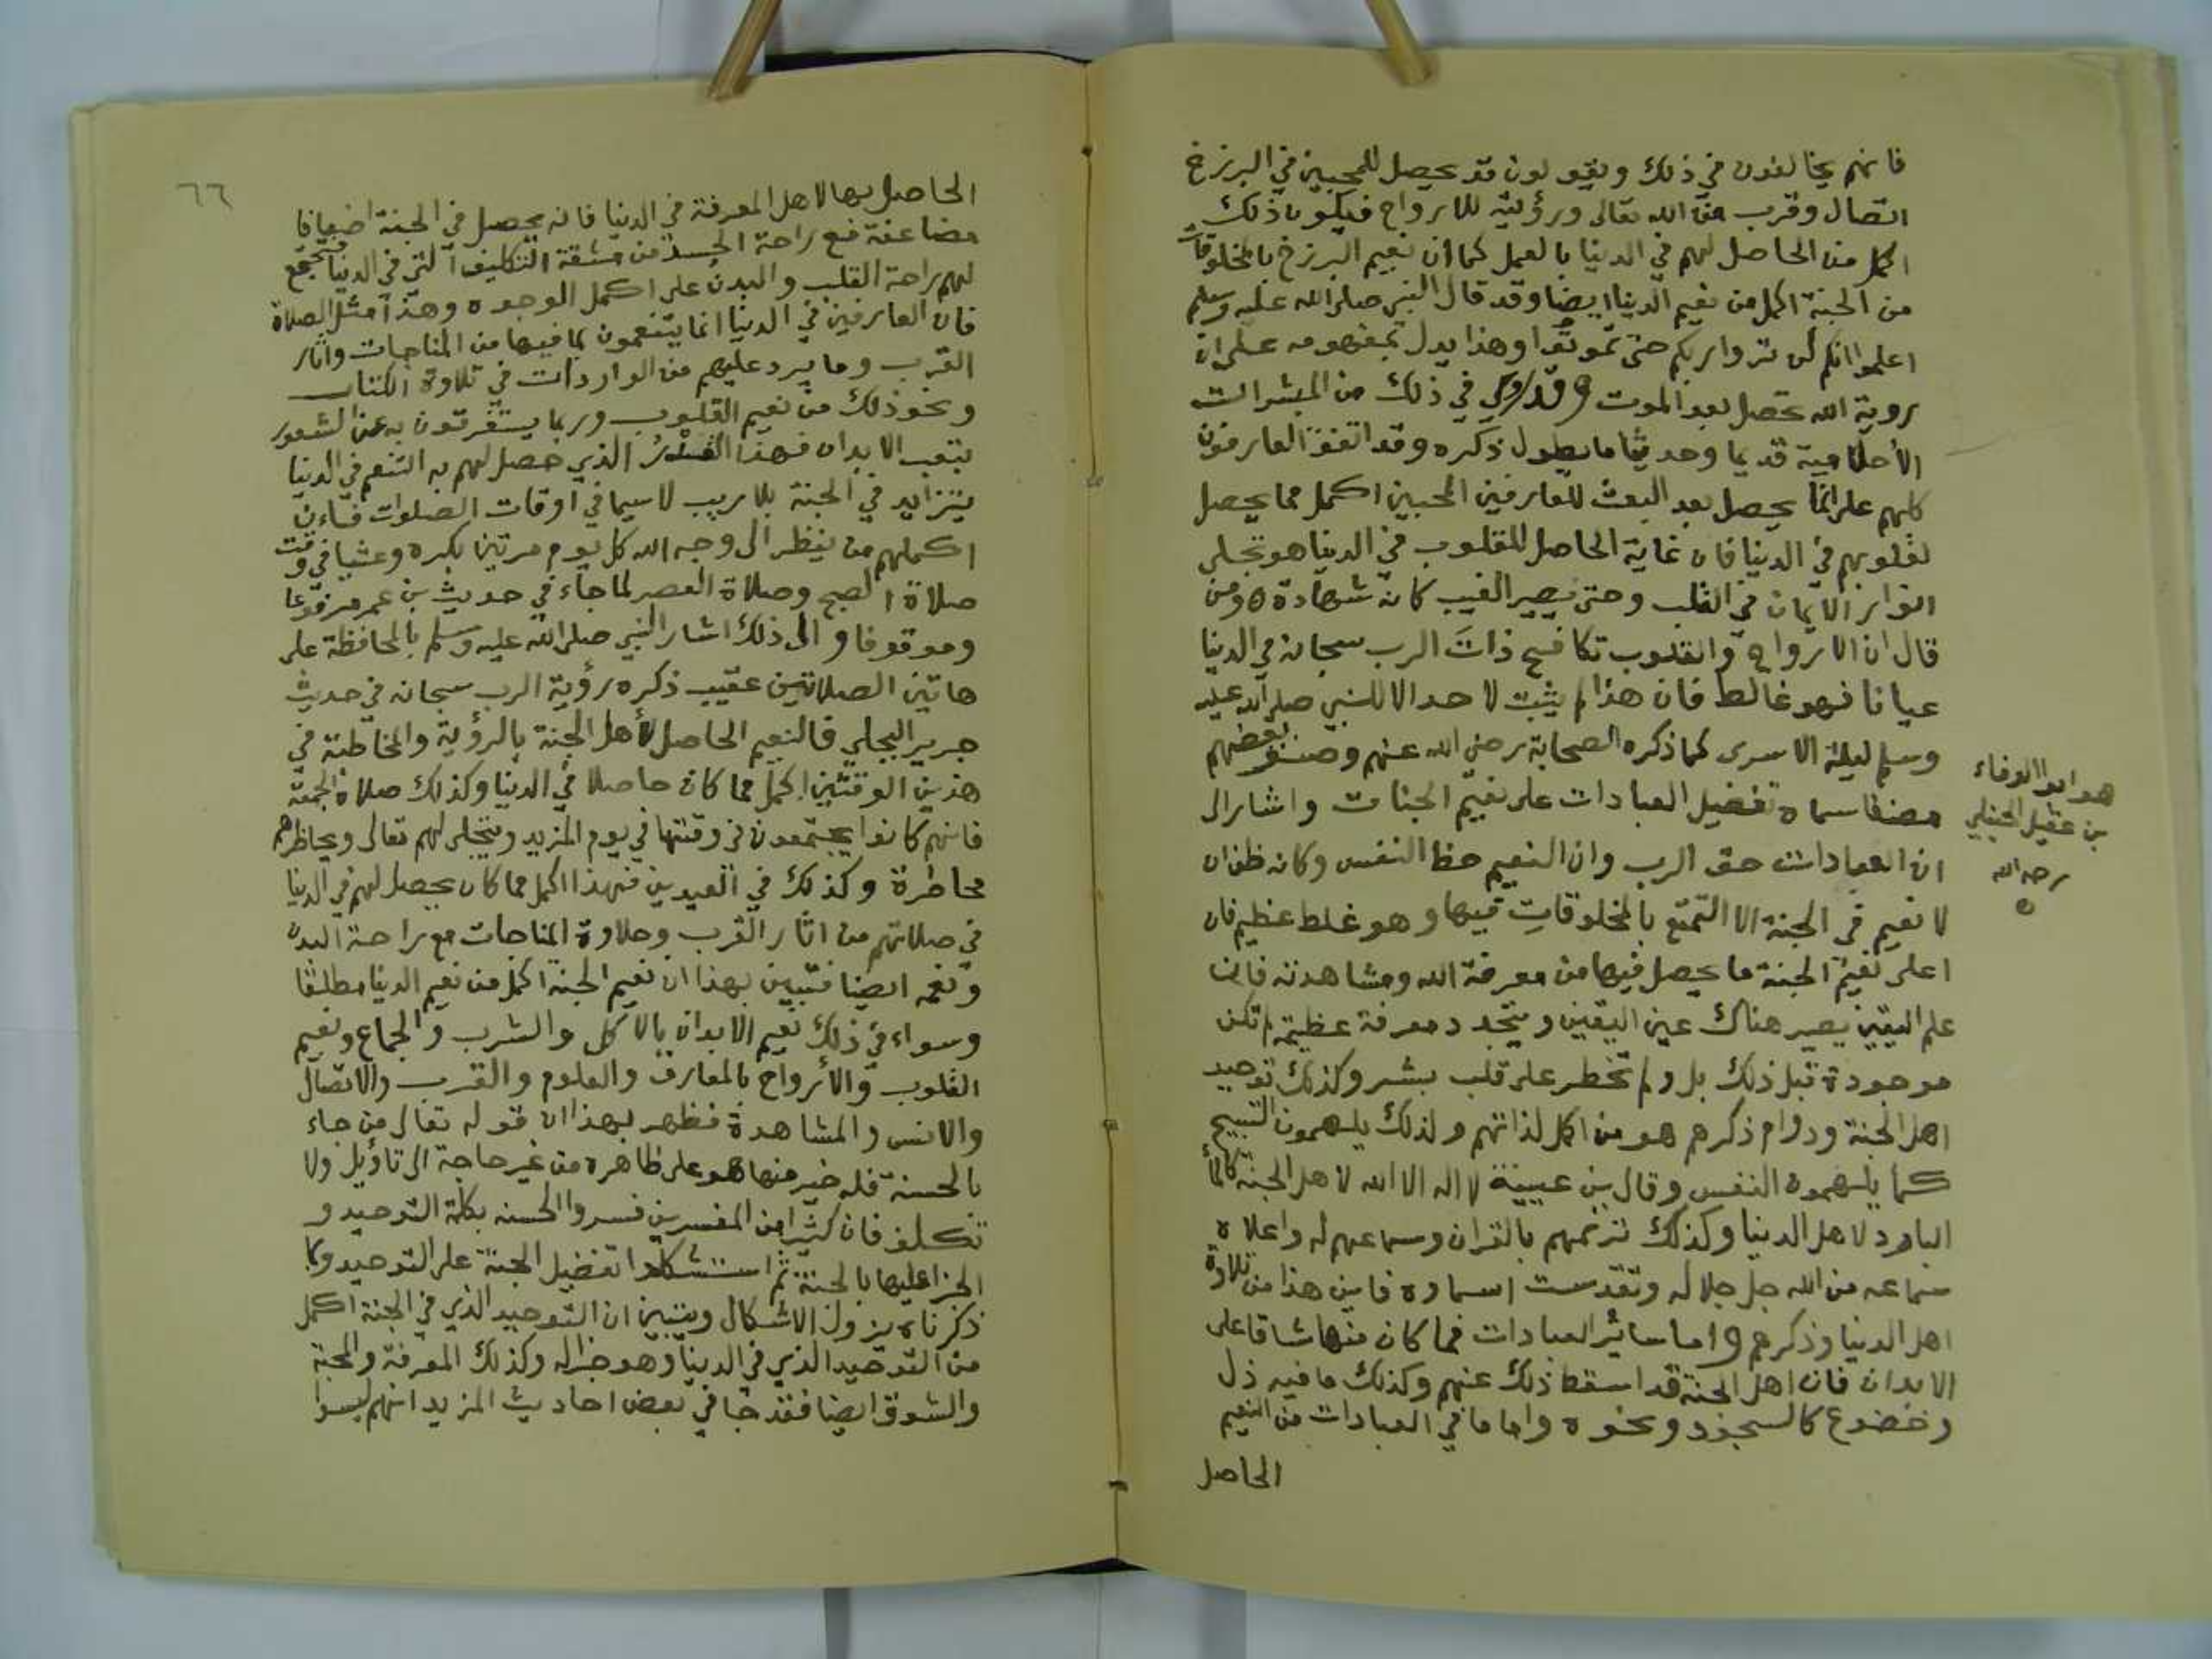 فانهم يخالفون في ذلك ويقولون قد يحصل للمحبين في البرزخ
اتصال وقرب من الله تعالى ورؤية للارواح فيكون ذلك
اكمل من الحاصل لهم في الدنيا بالعمل كما ان نعيم البرزخ بالمخلوقات
من الجنة اكمل من نعيم الدنيا ايضا وقد قال النبي صلى الله عليه وسلم
اعلموا انكم لن تروا ربكم حتى تموتوا وهذا يدل بمفهومه على ان
روية الله تحصل بعد الموت وقد روي في ذلك من المبشرات
الأحلامية قديما وحديثا ما يطول ذكره وقد اتفق العارفون
كلهم على انما يحصل بعد البعث للعارفين المحبين اكمل مما يحصل
لقلوبهم في الدنيا فان غاية الحاصل للقلوب في الدنيا هو تجلي
انوار الايمان في القلب وحتى يصير الغيب كانه شهادة ومن
قال ان الارواح والقلوب تكافح ذات الرب سبحانه في الدنيا
عيانا فهو غالط فان هذا لم يثبت لاحد الا للنبي صلى الله عليه
وسلم ليلة الاسرى كما ذكره الصحابة رضي الله عنهم وصنف بعضهم
مصنفا سماه تفضيل العبادات على نعيم الجنات واشار الى
ان العبادات حق الرب وان النعيم حظ النفس وكانه ظن ان
لا نعيم في الجنة الا التمتع بالمخلوقات فيها وهو غلط عظيم فان
اعلى نعيم الجنة ما يحصل فيها من معرفة الله ومشاهدته فان
علم اليقين يصير هناك عين اليقين ويتجدد معرفة عظيمة لم تكن
موجودة قبل ذلك بل ولم تخطر على قلب بشر وكذلك توحيد
اهل الجنة ودوام ذكرهم هو من اكمل لذاتهم ولذلك يلهمون التسبيح
كما يلهمون النفس وقال بن عيينة لا اله الا الله لاهل الجنة كالمأ
البارد لاهل الدنيا وكذلك ترنمهم بالقران وسماعهم له واعلاه
سماعه من الله جل جلاله وتقدست اسماوه فاين هذا من تلاوة
اهل الدنيا وذكرهم واما سائر العبادات فما كان منها شاقا على
الابدان فان اهل الجنة قد اسقط ذلك عنهم وكذلك ما فيه ذل
وخضوع كالسجود ونحوه واما ما في العبادات من النعيم
الحاصل
هو ابو الوفاء
بن عقيل الحنبلي
رحمه الله
٦٦
الحاصل بها لاهل المعرفة في الدنيا فانه يحصل في الجنة اضعافا
مضاعفة مع راحة الجسد من مشقة التكليف التي في الدنيا فتجتمع
لهم راحة القلب والبدن على اكمل الوجوه وهذا مثل الصلاة
فان العارفين في الدنيا انما يتنعمون بما فيها من المناجات واثار
القرب وما يرد عليهم من الواردات في تلاوة الكتاب
ونحو ذلك من نعيم القلوب وربما يستغرقون به عن الشعور
بتعب الابدان فهذا القدر الذي حصل لهم به التنعم في الدنيا
يتزايد في الجنة بلا ريب لا سيما في اوقات الصلوات فاان
اكملهم من ينظر الى وجه الله كل يوم مرتين بكره وعشيا في وقت
صلاة الصبح وصلاة العصر لما جاء في حديث بن عمر مرفوعا
وموقوفا والى ذلك اشار النبي صلى الله عليه وسلم بالمحافظة على
هاتين الصلاتين عقيب ذكره رؤية الرب سبحانه في حديث
جرير البجلي فالنعيم الحاصل لأهل الجنة بالرؤية والمخاطبة في
هذين الوقتين اكمل مما كان حاصلا في الدنيا وكذلك صلاة الجمعة
فانهم كانوا يجتمعون في وقتها في يوم المزيد ويتجلى لهم تعالى ويحاظرهم
محاظرة وكذلك في العيدين فهذا اكمل مما كان يحصل لهم في الدنيا
في صلاتهم من اثار القرب وحلاوة المناجات مع راحة البدن
ونعمه ايضا فتبين بهذا ان نعيم الجنة اكمل من نعيم الدنيا مطلقا
وسواء في ذلك نعيم الابدان بالاكل والشرب والجماع ونعيم
القلوب والأرواح بالمعارف والعلوم والقرب والاتصال
والانس والمشاهدة فظهر بهذا ان قوله تعالى من جاء
بالحسنة فله خير منها هو على ظاهره من غير حاجة الى تأويل ولا
تكلف فان كثيرا من المفسرين فسروا الحسنه بكلمة التوحيد و
الجزا عليها بالجنة ثم استشكلوا تفضيل الجنة على التوحيد وبما
ذكرناه يزول الاشكال ويتبين ان التوحيد الذي في الجنة اكمل
من التوحيد الذي في الدنيا وهو جزا له وكذلك المعرفة والمحبة
والشوق ايضا فقد جا في بعض احاديث المزيد انهم ليسوا